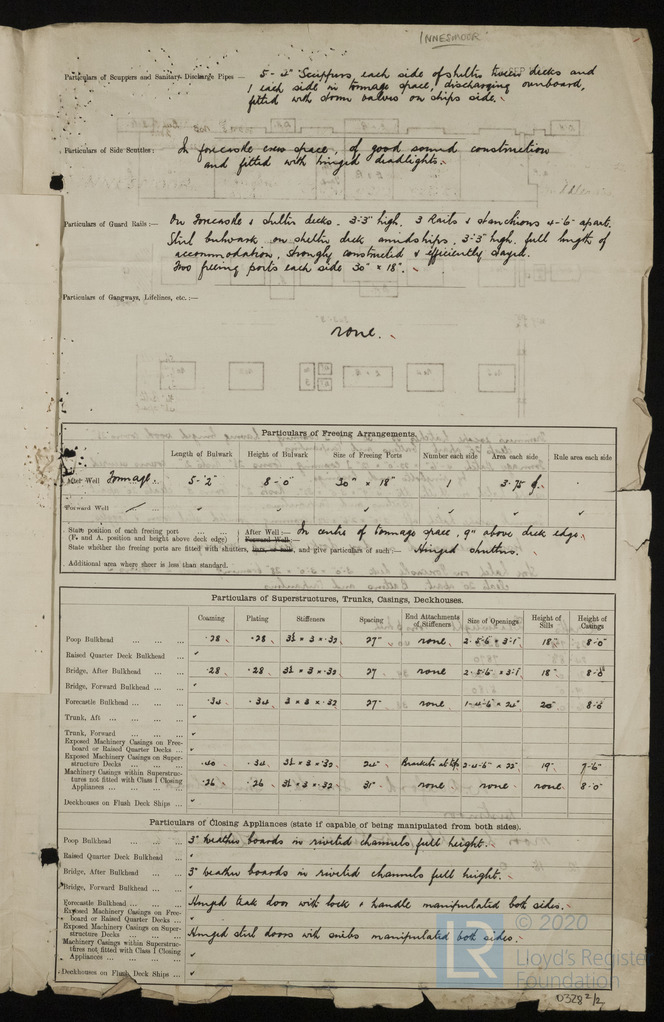 INNESMOOR
Particulars of Scuppers and Sanitary Discharge Pipes — 5 - 2" Scuppers each side of shelter tween decks and
1 each side in tonnage space, discharging overboard,
fitted with storm valves on ships side.
Particulars of Side Scuttles: In forecastle crew space, of good sound construction
and fitted with hinged deadlights.
Particulars of Guard Rails:— On Forecastle & shelter decks. 3'-3" high. 3 Rails & stanchions 4'-6" apart.
Steel bulwark on shelter deck amidships. 3'-3" high. full length of
accommodation, strongly constructed & efficiently stayed.
Two freeing ports each side 30" × 18".
Particulars of Gangways, Lifelines, etc.:—
none.
Particulars of Freeing Arrangements.
Length of Bulwark Height of Bulwark Size of Freeing Ports Number each side Area each side Rule area each side
After Well Tonnage. 5'-2" 8'-0" 30" × 18" 1 3.75
Forward Well
State position of each freeing port After Well:— In centre of tonnage space, 9" above deck edge.
(F. and A. position and height above deck edge) Forward Well:—
State whether the freeing ports are fitted with shutters, bars, or rails, and give particulars of such:— Hinged shutters.
Additional area where sheer is less than standard.
Particulars of Superstructures, Trunks, Casings, Deckhouses.
Coaming Plating Stiffeners Spacing End Attachments of Stiffeners Size of Openings Height of Sills Height of Casings
Poop Bulkhead ... ·28 ·28 3½ × 3 × ·32 27" none 2. 5'-6" × 3'-1" 18" 8'-0"
Raised Quarter Deck Bulkhead ... "
Bridge, After Bulkhead ... ·28 ·28 3½ × 3 × ·32 27 none 2. 5'-6" × 3'-1" 18" 8'-0"
Bridge, Forward Bulkhead ... "
Forecastle Bulkhead ... ·34 ·34 3 × 3 × ·32 27" none 1-4'-6" × 24" 20" 8'-0
Trunk, Aft ... "
Trunk, Forward ... "
Exposed Machinery Casings on Free-
board or Raised Quarter Decks ... "
Exposed Machinery Casings on Super-
structure Decks ... ·40 ·34 3½ × 3 × ·32 24" Brackets at top 2-4'-6" × 22" 19" 7'-6"
Machinery Casings within Superstruc-
tures not fitted with Class I Closing
Appliances ... ·26 ·26 3½ × 3 × ·32 31" none none none 8'-0
Deckhouses on Flush Deck Ships ... "
Particulars of Closing Appliances (state if capable of being manipulated from both sides).
Poop Bulkhead ... 3" weather boards in riveted channels full height.
Raised Quarter Deck Bulkhead ... "
Bridge, After Bulkhead ... 3" weather boards in riveted channels full height.
Bridge, Forward Bulkhead ... "
Forecastle Bulkhead ... Hinged teak door with lock & handle manipulated both sides.
Exposed Machinery Casings on Free-
board or Raised Quarter Decks ... "
Exposed Machinery Casings on Super-
structure Decks ... Hinged steel doors with snibs manipulated both sides.
Machinery Casings within Superstruc-
tures not fitted with Class I Closing
Appliances ... "
Deckhouses on Flush Deck Ships ... "
© 2020
LR
Lloyd's Register
Foundation
D328 2/2